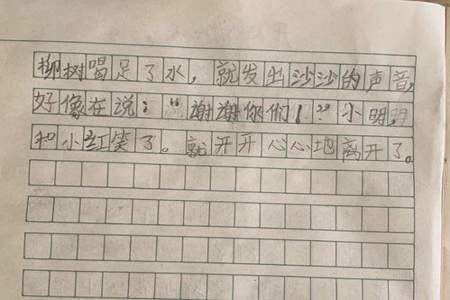 柳树喝足了水，就发出沙沙的声音，
好像在说：“谢谢你们！”小明
和小红笑了。就开开心心地离开了。